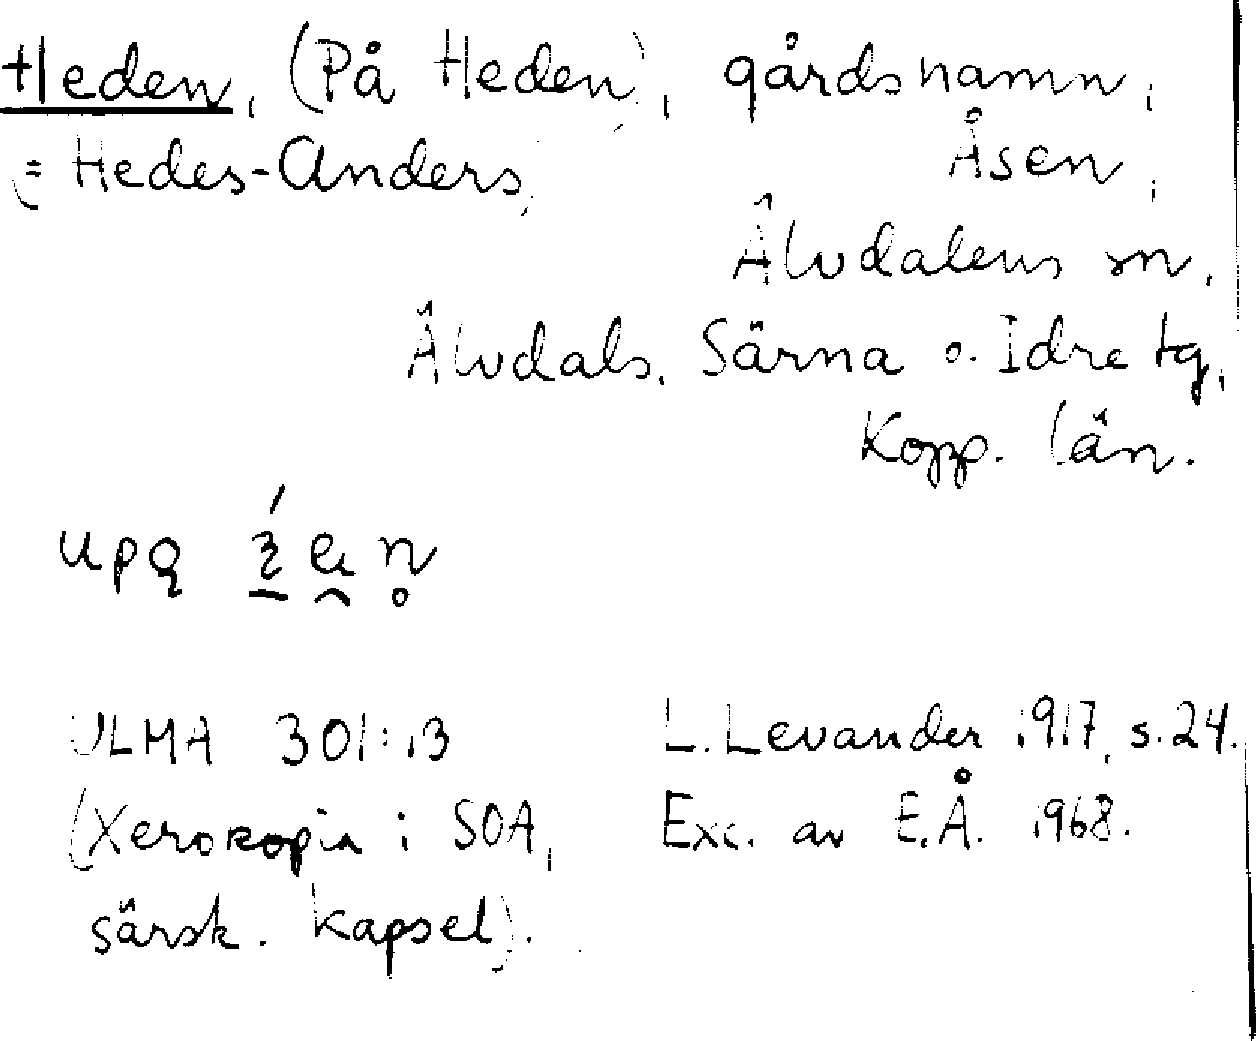 Heden, (På Heden), gårdsnamn,
= Hedes-Anders, Åsen,
Älvdalens sn,
Älvdals, Särna o. Idre tg,
Kopp. län.
ULMA 301:13 L. Levander 1917, s. 24.
(Xerokopia i SOA, Exc. av E.Å. 1968.
särsk. kapsel).